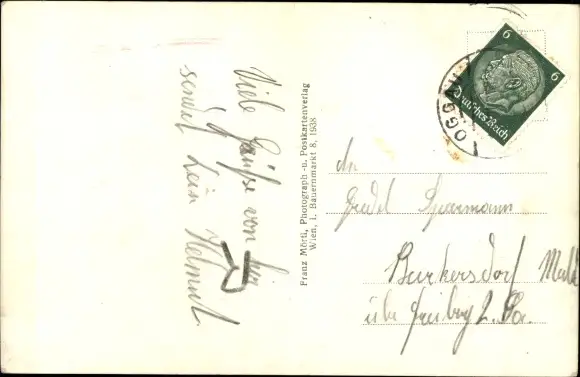 Viele Grüße von hier
sendet Dein Helmut
Franz Mörtl, Photograph - u. Postkartenverlag
Wien, I. Bauernmarkt 8, 1938
6 6
Deutsches Reich
OGGAU
An
Gredel
Burkersdorf
über Freiberg i. Sa.